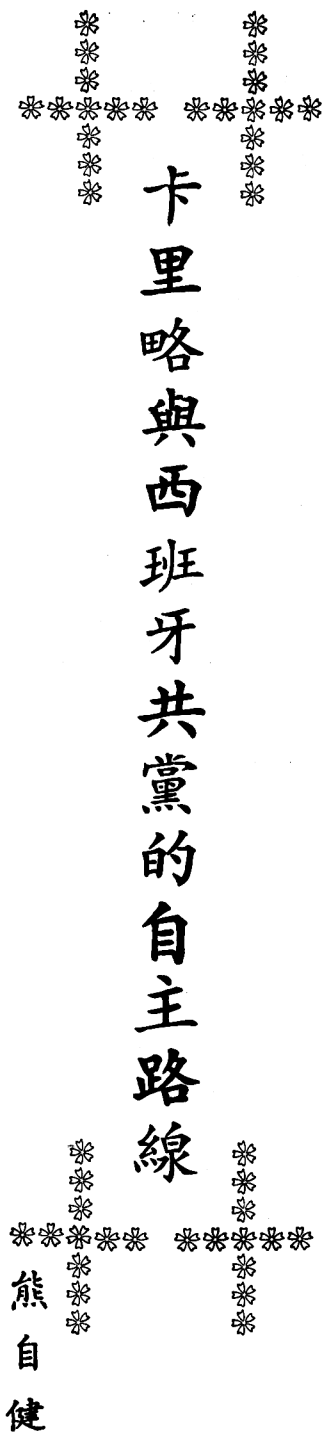 卡里略與西班牙共黨的自主路線
熊自健